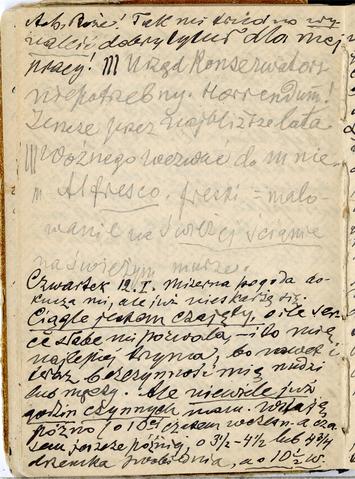 Ach, Boże! Tak mi trudno wy-
naleźć dobry tytuł dla mej
pracy! Urząd Konserwatora
niepotrzebny. Horrendum!
Jeszcze przez najbliższe lata
Woźnego wezwać do mnie
Al fresco, freski = malo-
wanie na świeżej ścianie
na świeżym murze.
Czwartek 12.I. Mizerna pogoda do-
kucza mi, ale już nie skarżę się.
Ciągle jestem czajęty, o ile ser-
ce słabe mi pozwala, – i to mię
najlepiej trzyma, bo nawet i
teraz bezczynność mię nudzi
lub męczy. Ale niewiele już
godzin czynnych mam. Wstaję
późno, o 10ej czasem wcześn. a cza-
sem jeszcze później, o 3½–4½ lub 4¾
drzemka, a o 10½ w.